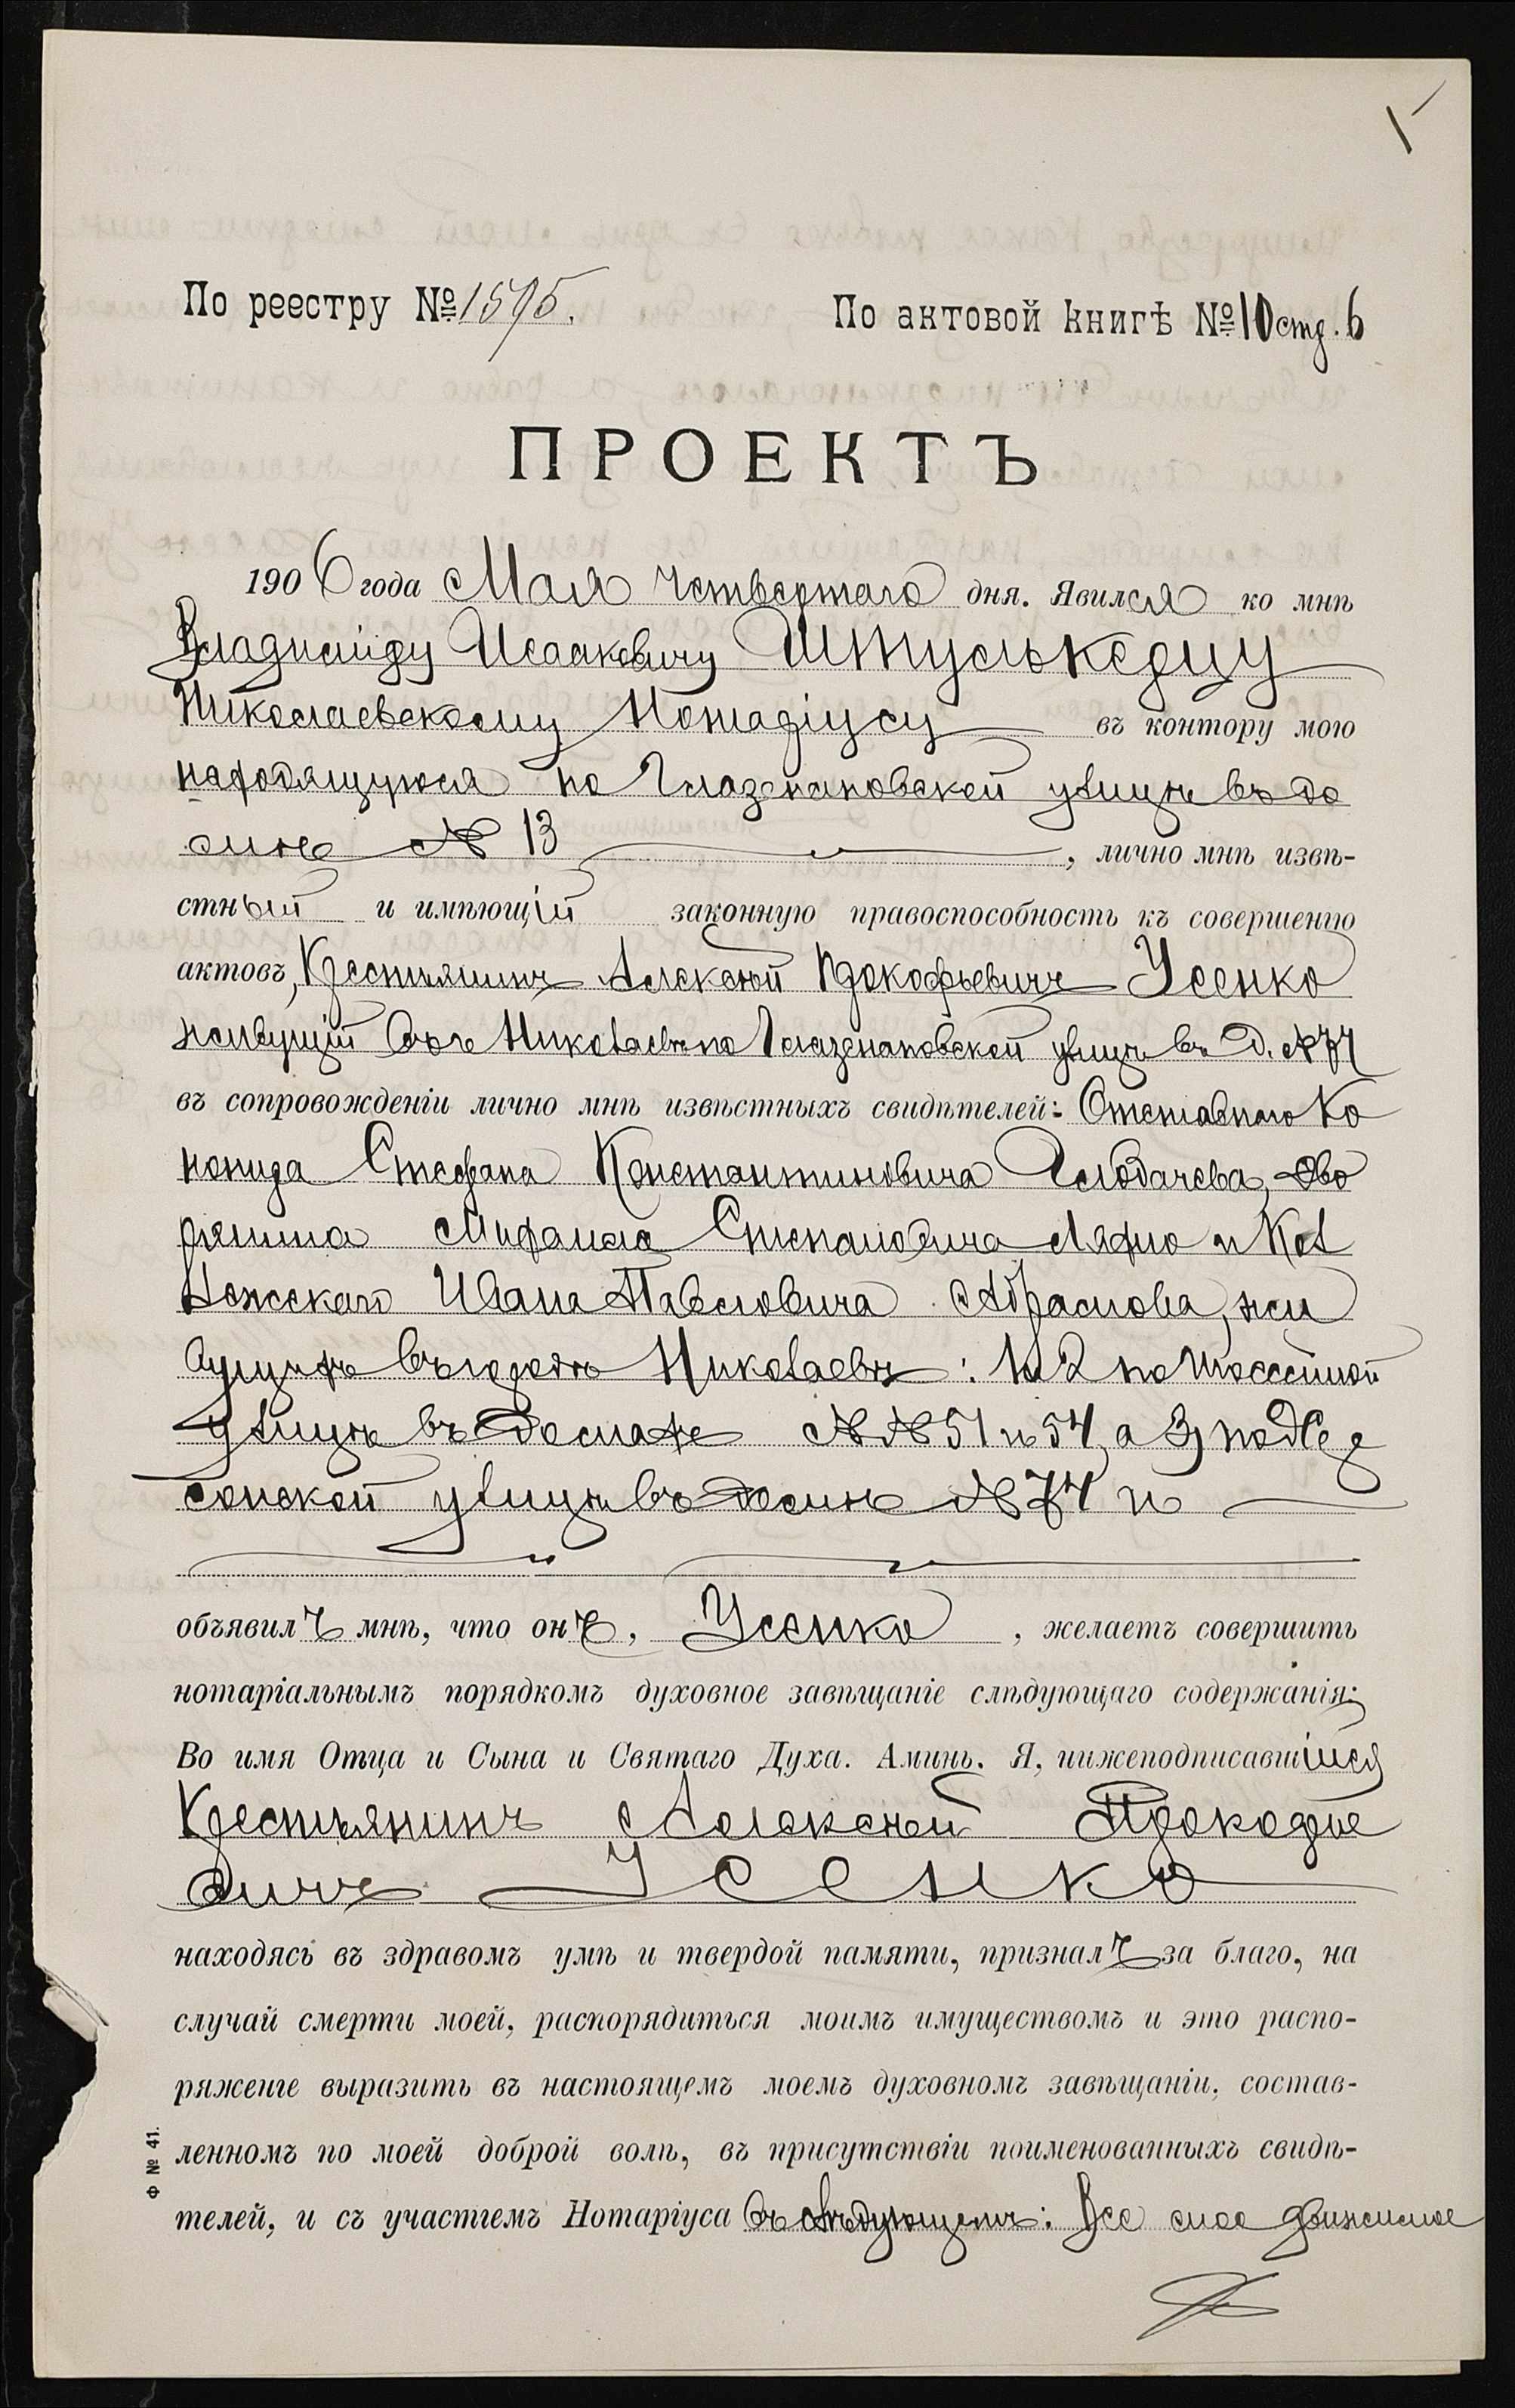 По реестру № 1595.
По актовой книгѣ № 10 стр. 6
ПРОЕКТЪ
1906 года Мая четвертаго дня. Явился ко мнѣ
Владиміру Исааковичу Штулькерцу
Николаевскому Нотаріусу въ контору мою
находящуюся по Глазенаповской улицѣ въ до
мѣ № 13, лично мнѣ извѣ-
стный и имѣющій законную правоспособность къ совершенію
актовъ, Крестьянинъ Алексѣй Прокофьевичъ Усенко
живущій въ г. Николаевѣ по Глазенаповской улицѣ въ д. № 77
въ сопровожденіи лично мнѣ извѣстныхъ свидѣтелей: Отставного Ко
нонира Стефана Константиновича Дво
рянина Михаила Степановича и Кол
лежскаго Ивана Павловича Абрамова, жи
вущихъ въ городѣ Николаевѣ: 1 и 2 по Шоссейной
улицѣ въ домахъ №№ 51 и 54, а 3) по Хер
сонской улицѣ въ домѣ № 74 и
объявилъ мнѣ, что онъ, Усенко, желаетъ совершить
нотаріальнымъ порядкомъ духовное завѣщаніе слѣдующаго содержанія:
Во имя Отца и Сына и Святаго Духа. Аминь. Я, нижеподписавшійся
Крестьянинъ Алексѣй Прокофье
вичъ Усенко
находясь въ здравомъ умѣ и твердой памяти, призналъ за благо, на
случай смерти моей, распорядиться моимъ имуществомъ и это распо-
ряженіе выразить въ настоящемъ моемъ духовномъ завѣщаніи, состав-
ленномъ по моей доброй волѣ, въ присутствіи поименованныхъ свидѣ-
телей, и съ участіемъ Нотаріуса въ слѣдующемъ: Все мое движимое
Ф № 41.